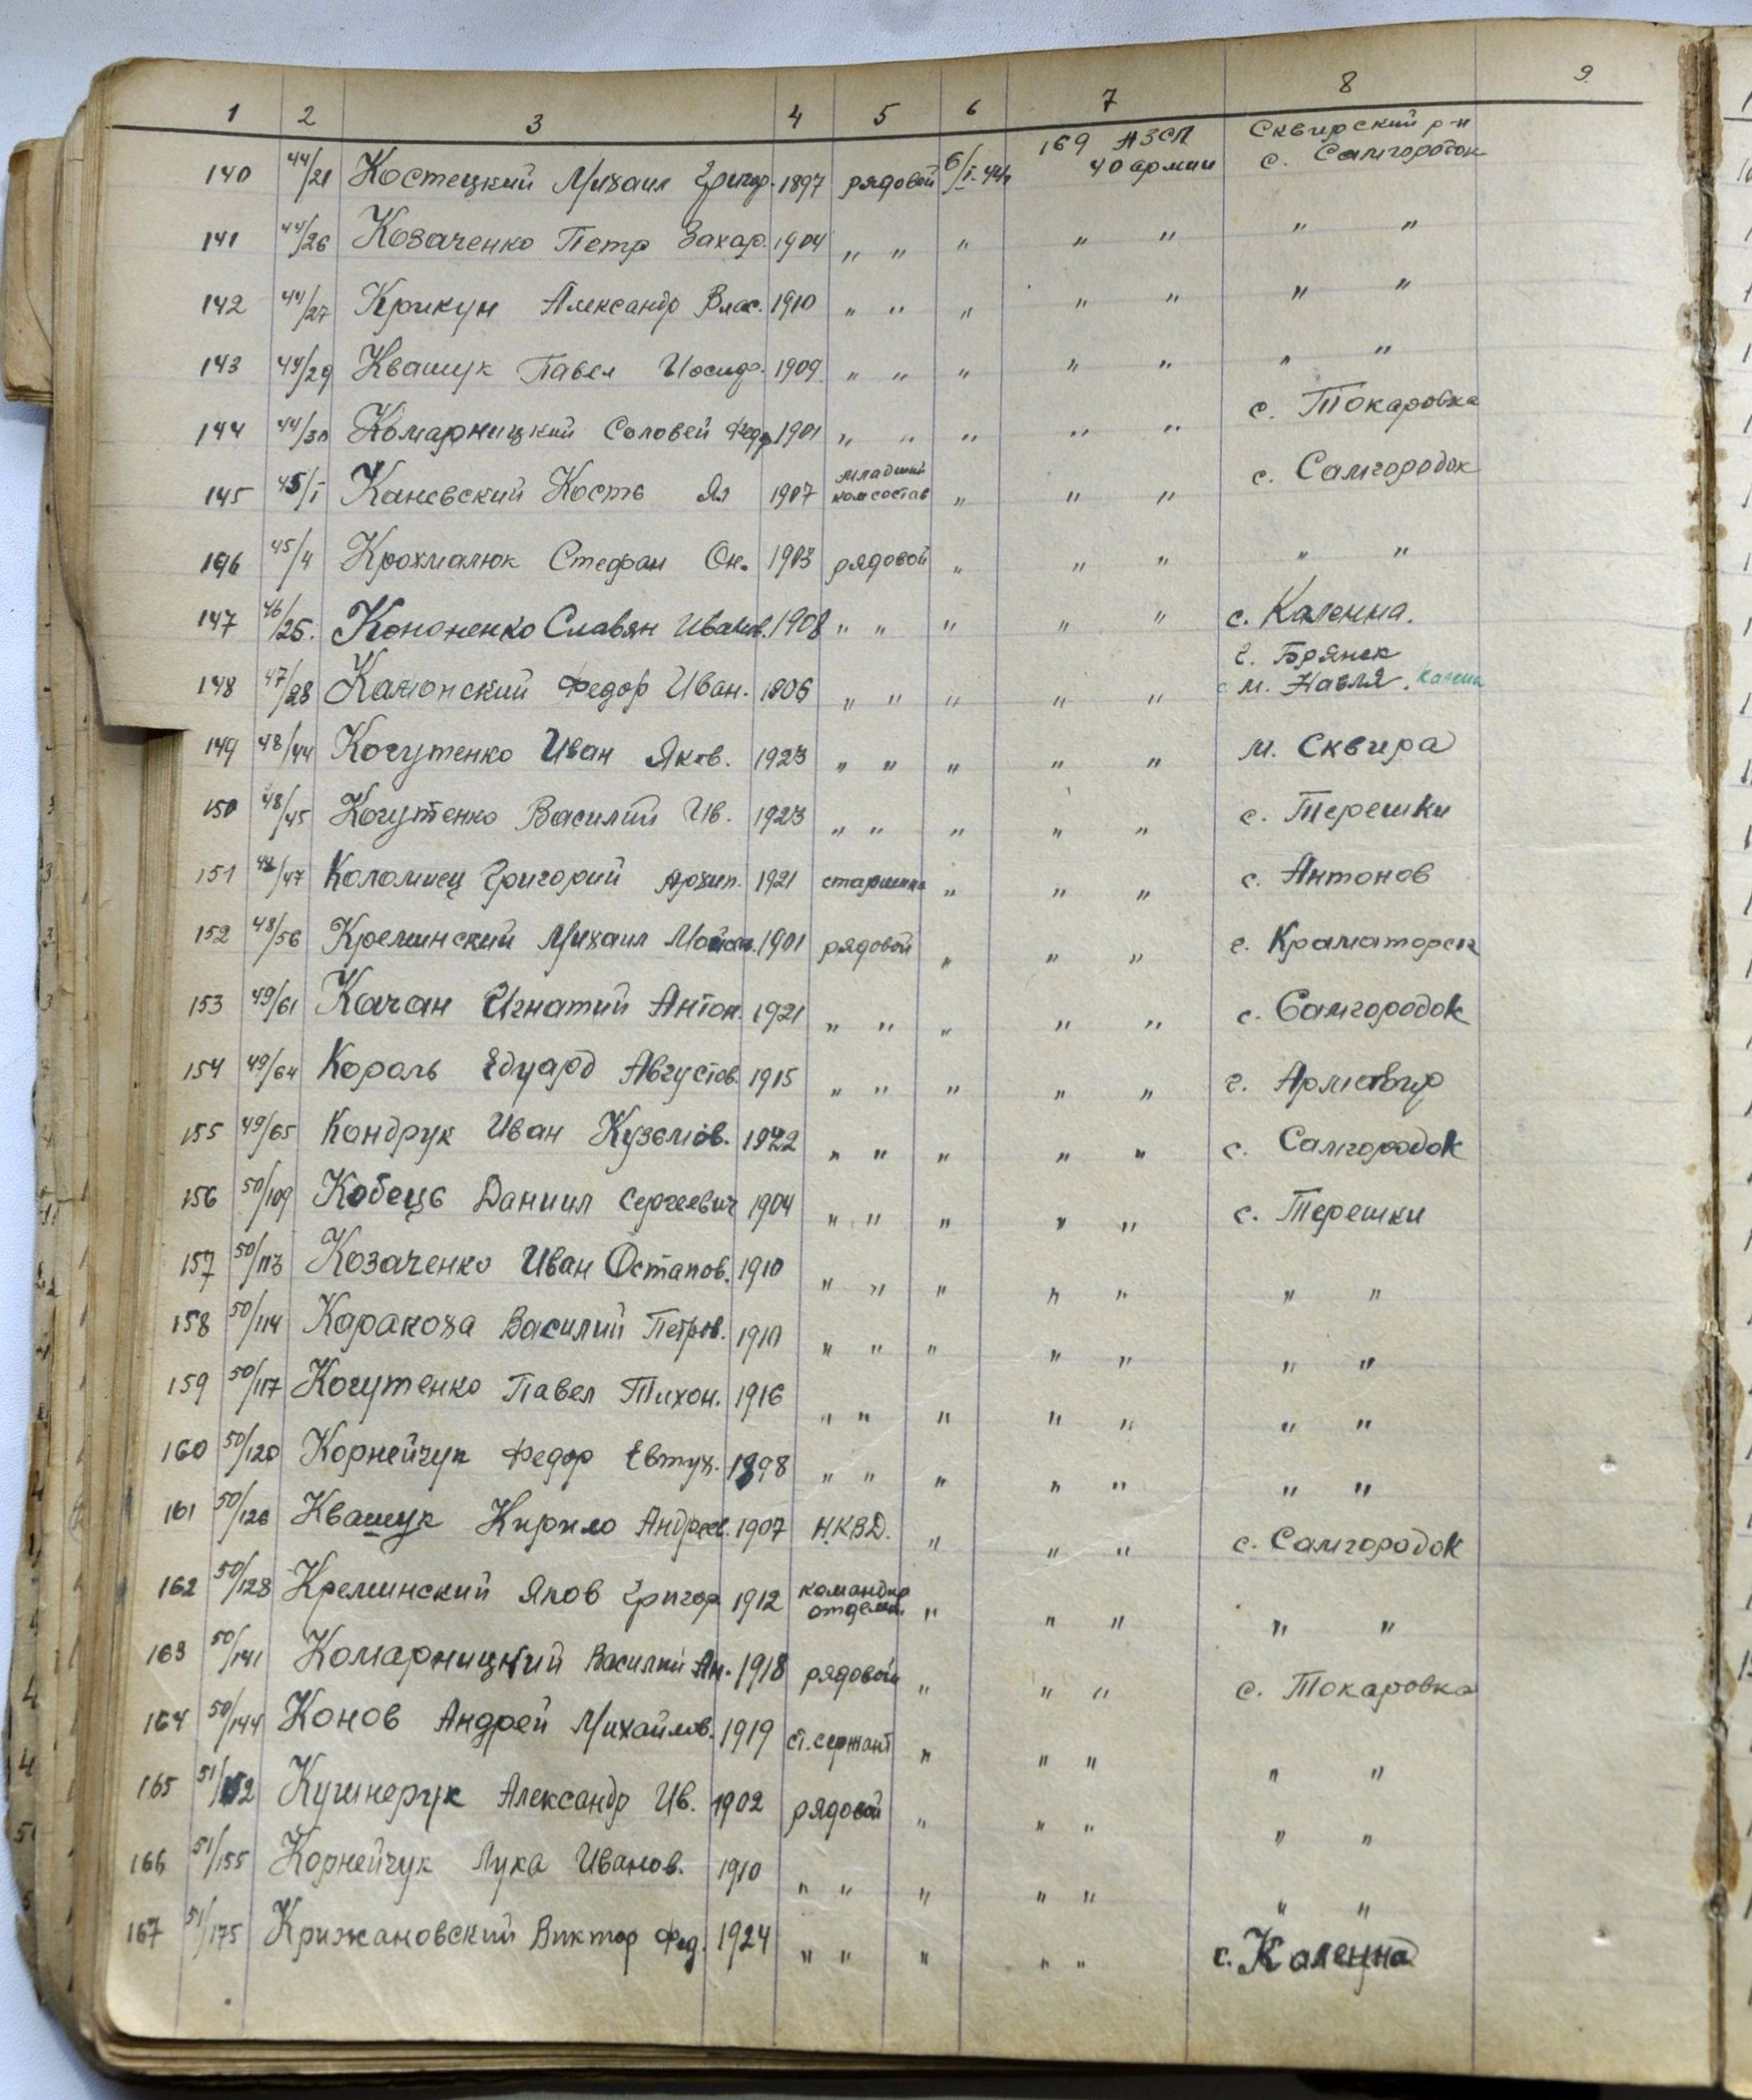 1 2 3 4 5 6 7 8 9
140 44/21 Костецкий Михаил Григор. 1897 рядовой 6/I-44г 169 АЗСП 40 армии Сквирский р-н с. Самгородок
141 44/26 Козаченко Петр Захар. 1904 " " " " " " "
142 44/27 Крикун Александр Влас. 1910 " " " " " " "
143 44/29 Квашук Павел Иосиф. 1909 " " " " " " "
144 44/30 Комарницкий Соловей Фед. 1901 " " " " " с. Токаровка
145 45/1 Каневский Кость Як 1907 младший комсостав " " " с. Самгородок
146 45/4 Крохмалюк Стефан Он. 1903 рядовой " " " " "
147 46/25. Кононенко Славян Иванов. 1908 " " " " " с. Каленна.
148 47/28 Камонский Федор Иван. 1906 " " " " " г. Брянск с м. Навля. Кален
149 48/44 Когутенко Иван Яков. 1923 " " " " " м. Сквира
150 48/45 Когутенко Василий Ив. 1923 " " " " " с. Терешки
151 48/47 Коломиец Григорий Архип. 1921 старшина " " " с. Антонов
152 48/56 Креминский Михаил 1901 рядовой " " " г. Краматорск
153 49/61 Качан Игнатий Антон. 1921 " " " " " с. Самгородок
154 49/64 Король Едуард Августов. 1915 " " " " " г. Армавир
155 49/65 Кондрук Иван Кузьмов. 1922 " " " " " с. Самгородок
156 50/109 Кобець Даниил Сергеевич 1904 " " " " " с. Терешки
157 50/113 Козаченко Иван Остапов. 1910 " " " " " " "
158 50/114 Каракоха Василий Петров. 1910 " " " " " " "
159 50/117 Когутенко Павел Тихон. 1916 " " " " " " "
160 50/120 Корнейчук Федор Евтух. 1898 " " " " " " "
161 50/126 Квашук Кирило Андреев. 1907 НКВД. " " " с. Самгородок
162 50/128 Креминский Яков Григор 1912 командир отделен. " " " " "
163 50/141 Комарницкий Василий Ан. 1918 рядовой " " " с. Токаровка
164 50/144 Конов Андрей Михайлов. 1919 ст. сержант " " " " "
165 51/152 Кушнерук Александр Ив. 1902 рядовой " " " " "
166 51/155 Корнейчук Лука Иванов. 1910 " " " " " " "
167 51/175 Крижановский Виктор Фед. 1924 " " " " " с. Каленна